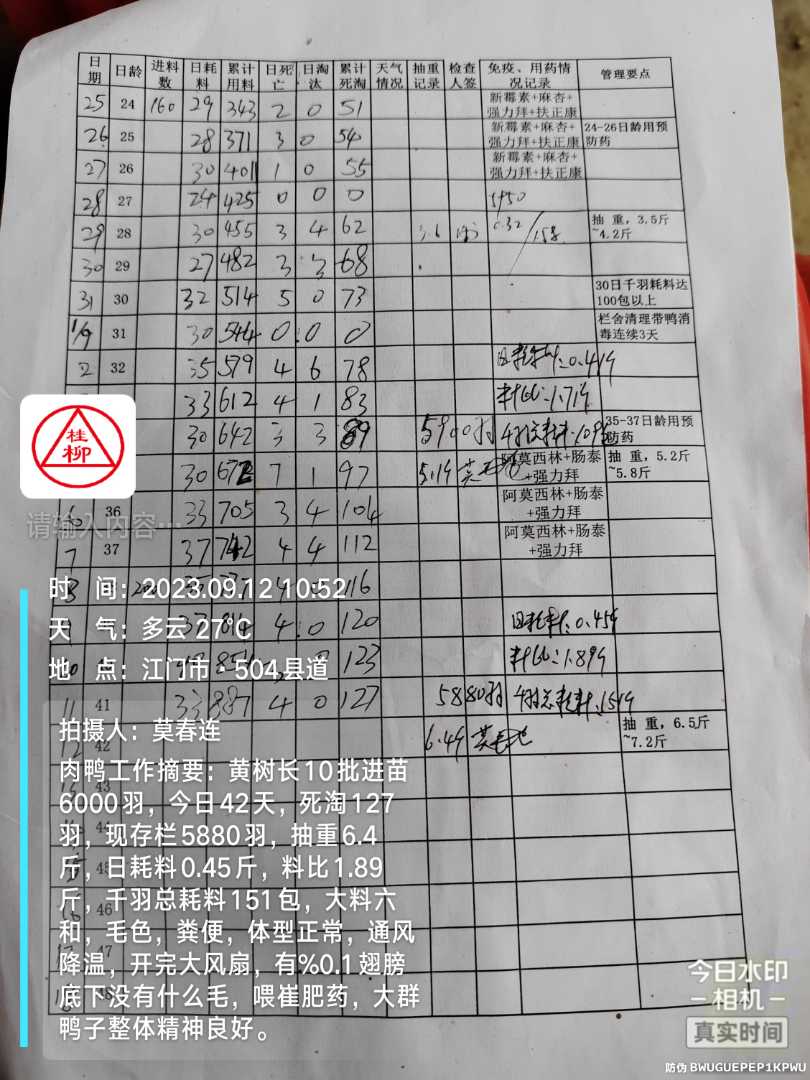 日期 日龄 进料数 日耗料 累计用料 日死亡 日淘汰 累计死淘 天气情况 抽重记录 检查人签 免疫、用药情况记录 管理要点
25 24 160 29 343 2 0 51 新霉素+麻杏+强力拜+扶正康
26 25 28 371 3 0 54 新霉素+麻杏+强力拜+扶正康 24-26日龄用预防药
27 26 30 401 1 0 55 新霉素+麻杏+强力拜+扶正康
28 27 24 425 0 0 0 5950
29 28 30 455 3 4 62 3.6 0.32 抽重,3.5斤~4.2斤
30 29 27 482 3 3 68
31 30 32 514 5 0 73 30日千羽耗料达100包以上
1/9 31 30 544 0 0 0 栏舍清理带鸭消毒连续3天
2 32 35 579 4 6 78 日耗料:0.41斤
33 612 4 1 83 料比:1.71斤
30 642 3 3 89 5900羽 千羽总耗料:109包 35-37日龄用预防药
30 672 7 1 97 5.1斤 阿莫西林+肠泰+强力拜 抽重,5.2斤~5.8斤
6 36 33 705 3 4 104 阿莫西林+肠泰+强力拜
7 37 37 742 4 4 112 阿莫西林+肠泰+强力拜
8 116
814 4 0 120 日耗料:0.45斤
123 料比:1.89斤
11 41 33 887 4 0 127 5880羽 千羽总耗料:151包
12 42 6.4斤 抽重,6.5斤~7.2斤
43
44
45
46
47
48
桂柳
请输入内容…
时 间:2023.09.12 10:52
天 气:多云 27℃
地 点:江门市·504县道
拍摄人:莫春连
肉鸭工作摘要:黄树长10批进苗
6000羽,今日42天,死淘127
羽,现存栏5880羽,抽重6.4
斤,日耗料0.45斤,料比1.89
斤,千羽总耗料151包,大料六
和,毛色,粪便,体型正常,通风
降温,开完大风扇,有%0.1翅膀
底下没有什么毛,喂崔肥药,大群
鸭子整体精神良好。
今日水印
相机
真实时间
防伪 BWUGUEPEP1KPWU